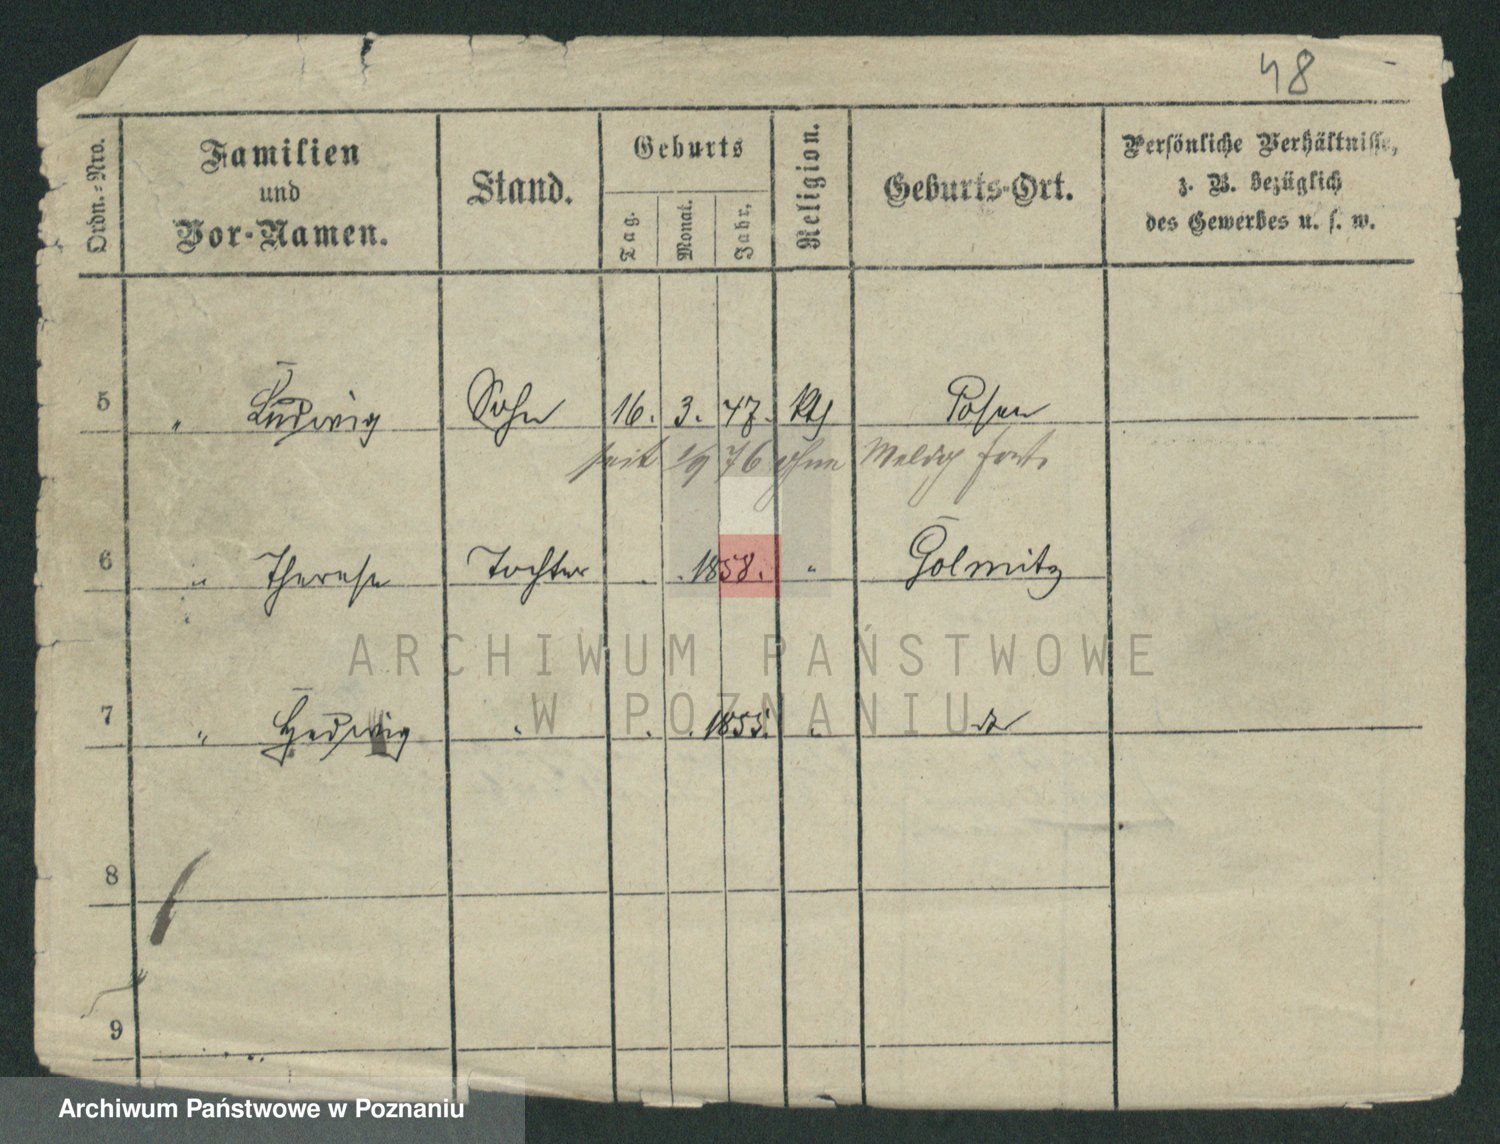 48
Ordn.=Nro.
Familien
und
Vor-Namen.
Stand.
Geburts
Tag.
Monat.
Jahr.
Religion.
Geburts-Ort.
Persönliche Verhältnisse,
z. B. bezüglich
des Gewerbes u. s. w.
5 " Ludwig Sohn 16. 3. 47. kth Posen
seit 1/9 76 ohne Meldg fort.
6 " Therese Tochter . . 1858. " Golmitz
7 " Hedwig " . . 1855. " do
8
9
ARCHIWUM PAŃSTWOWE
W POZNANIU
Archiwum Państwowe w Poznaniu